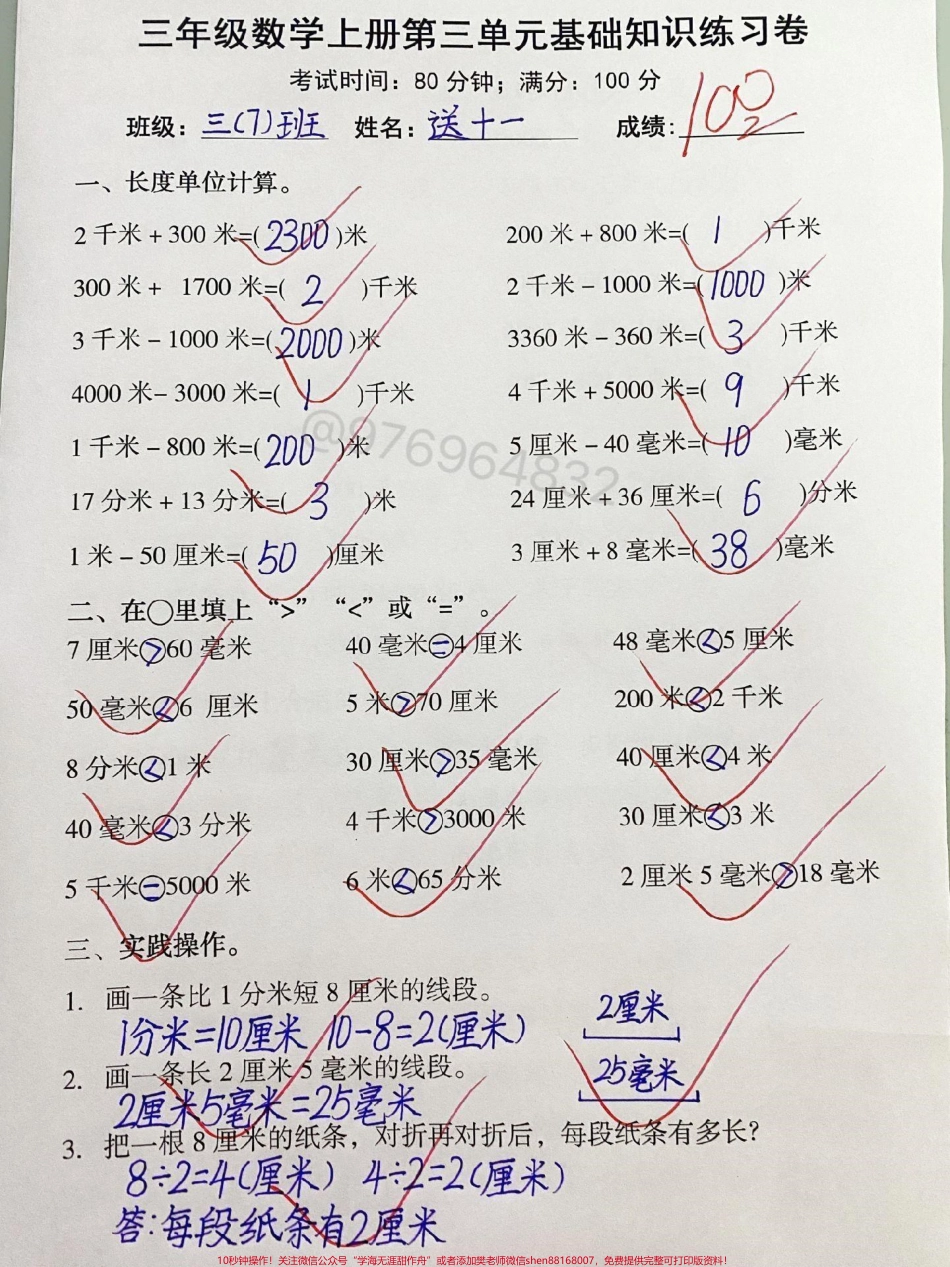 三年级数学上册第三单元基础知识练习卷
考试时间：80 分钟；满分：100 分
班级：三(7)班 姓名：送十一 成绩：100
一、长度单位计算。
2 千米 + 300 米=( 2300 )米 200 米 + 800 米=( 1 )千米
300 米 + 1700 米=( 2 )千米 2 千米 − 1000 米=( 1000 )米
3 千米 − 1000 米=( 2000 )米 3360 米 − 360 米=( 3 )千米
4000 米− 3000 米=( 1 )千米 4 千米 + 5000 米=( 9 )千米
1 千米 − 800 米=( 200 )米 5 厘米 − 40 毫米=( 10 )毫米
17 分米 + 13 分米=( 3 )米 24 厘米 + 36 厘米=( 6 )分米
1 米 − 50 厘米=( 50 )厘米 3 厘米 + 8 毫米=( 38 )毫米
@976964832
二、在○里填上“>”“<”或“=”。
7 厘米>60 毫米 40 毫米=4 厘米 48 毫米<5 厘米
50 毫米<6 厘米 5 米>70 厘米 200 米<2 千米
8 分米<1 米 30 厘米>35 毫米 40 厘米<4 米
40 毫米<3 分米 4 千米>3000 米 30 厘米<3 米
5 千米=5000 米 6 米<65 分米 2 厘米 5 毫米>18 毫米
三、实践操作。
1. 画一条比 1 分米短 8 厘米的线段。
1分米=10厘米 10-8=2(厘米) 2厘米
2. 画一条长 2 厘米 5 毫米的线段。
2厘米5毫米=25毫米 25毫米
3. 把一根 8 厘米的纸条，对折再对折后，每段纸条有多长？
8÷2=4(厘米) 4÷2=2(厘米)
答：每段纸条有2厘米
10秒钟操作！关注微信公众号“学海无涯甜作舟”或者添加樊老师微信shen88168007，免费提供完整可打印版资料！